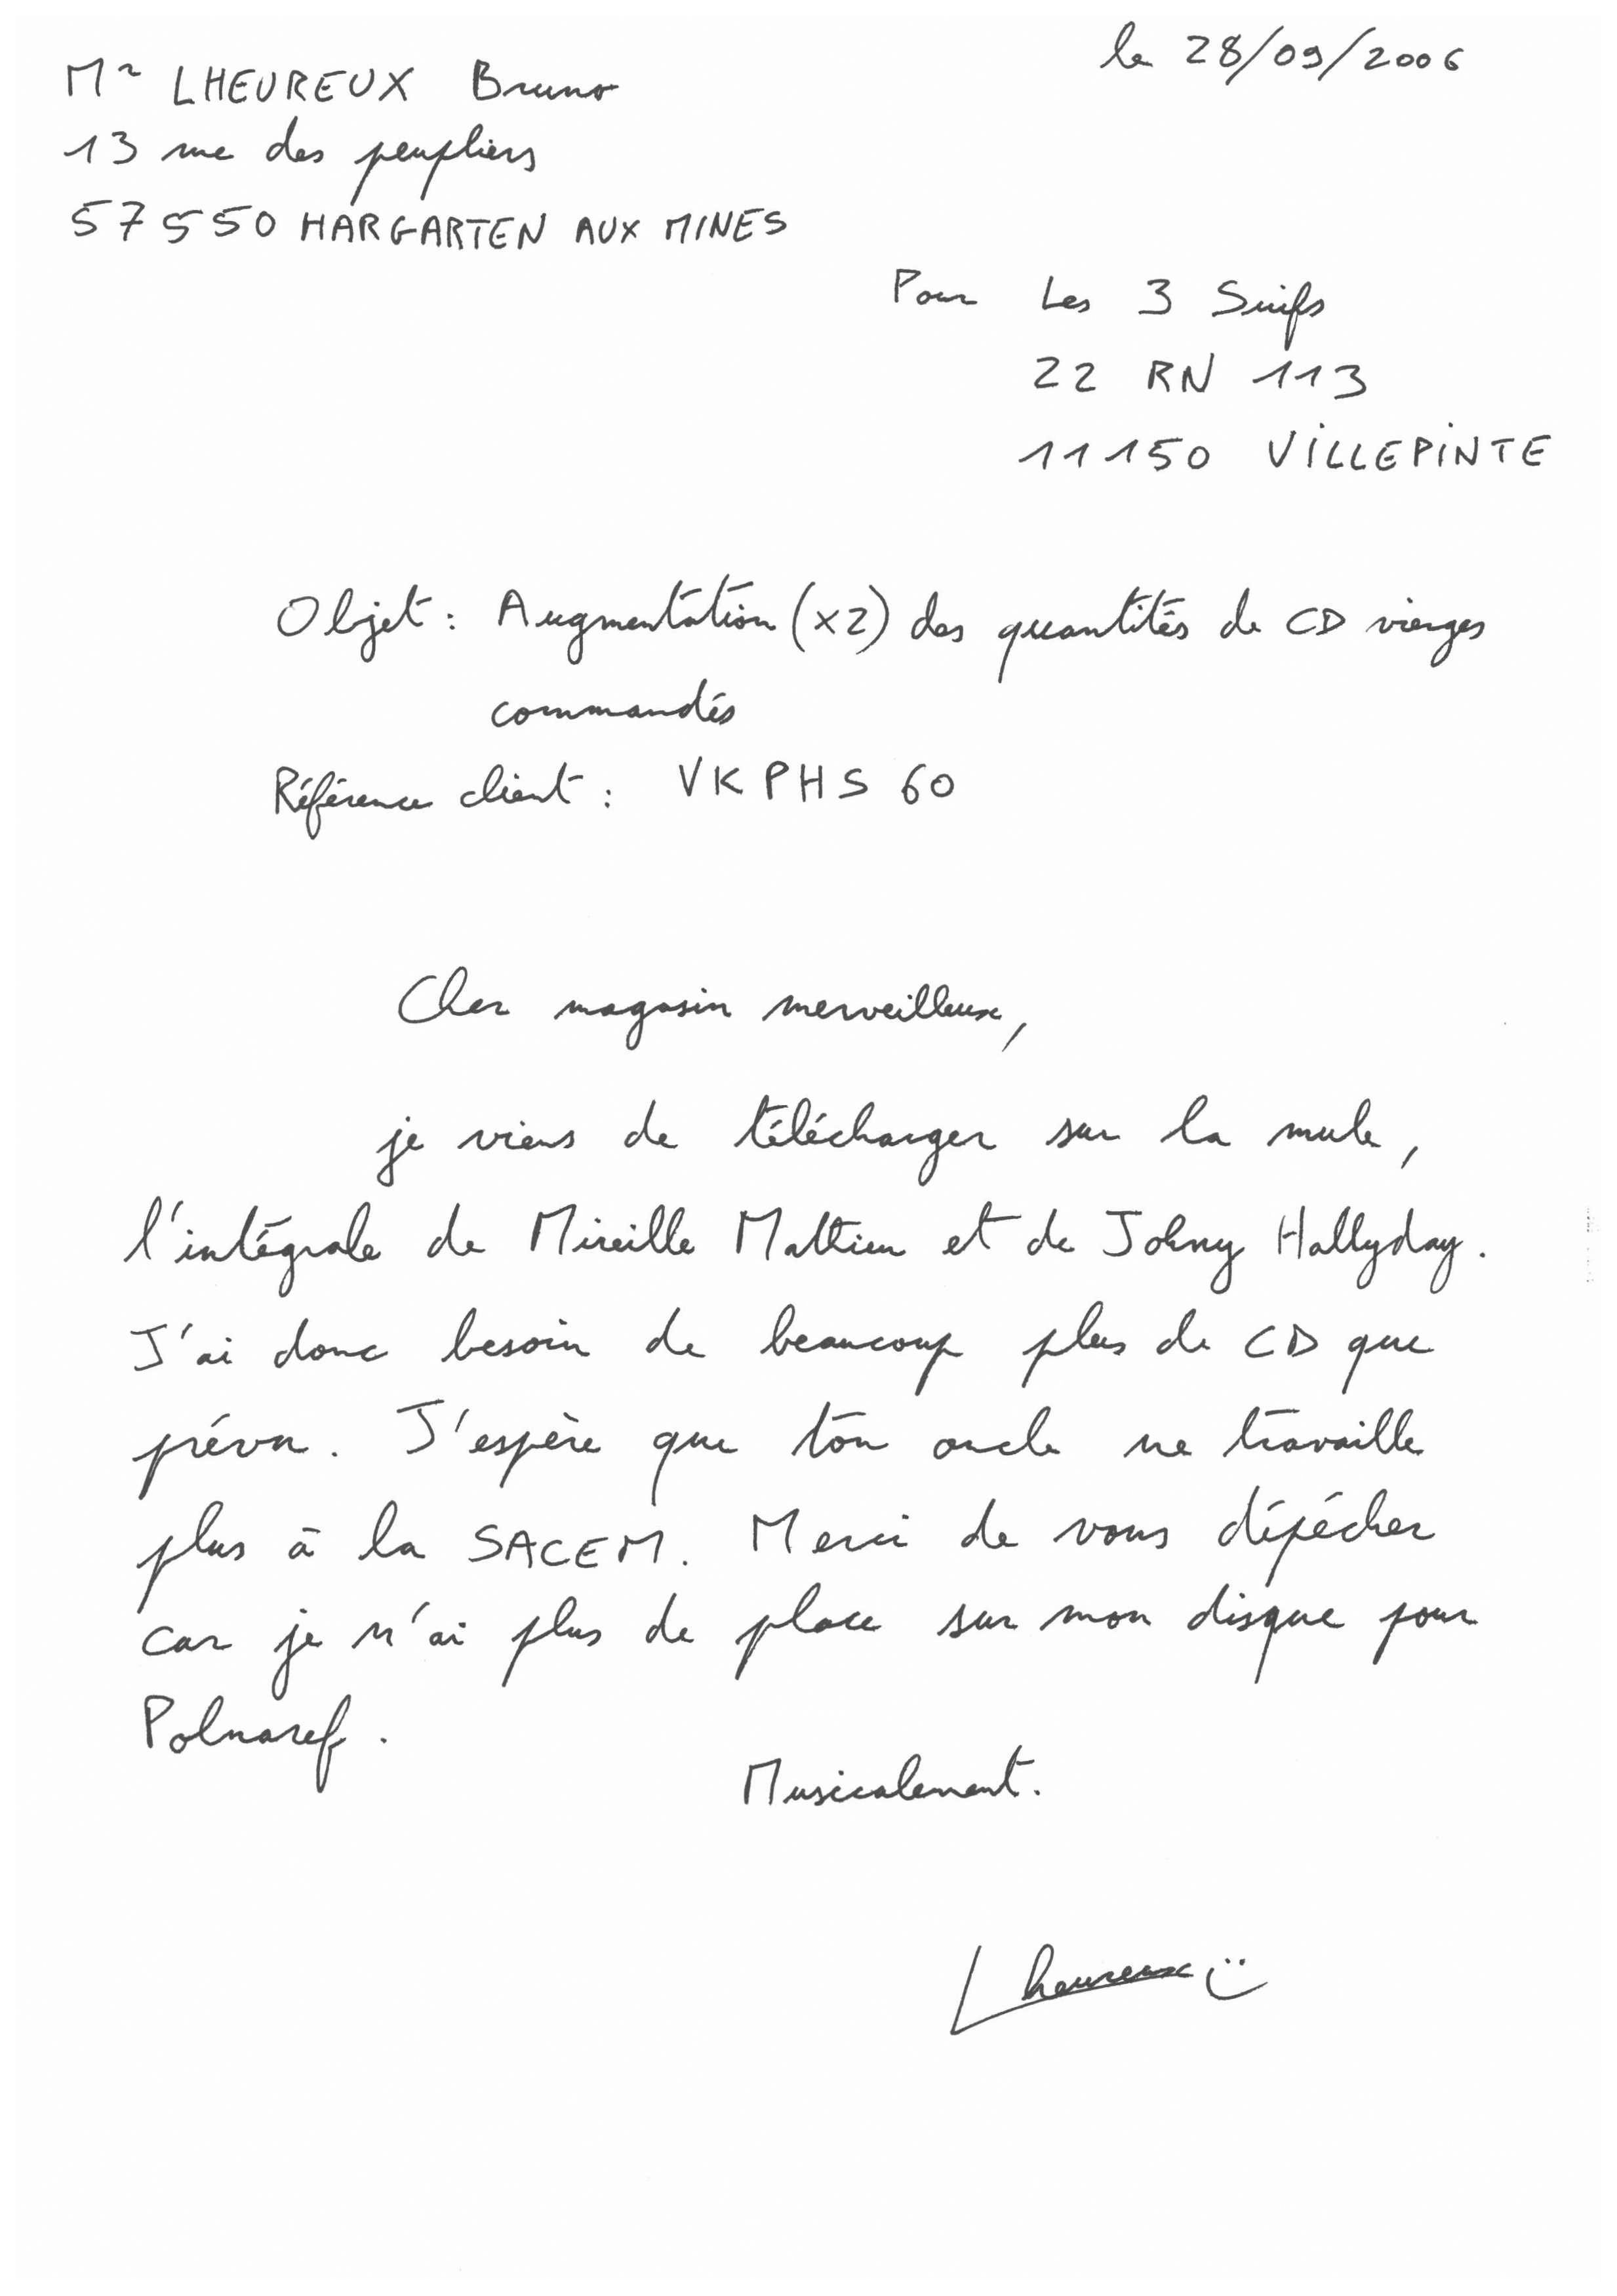 le 28/09/2006
Mr LHEUREUX Bruno
13 rue des peupliers
57550 HARGARTEN AUX MINES
Pour Les 3 Suifs
22 RN 113
11150 VILLEPINTE
Objet : Augmentation (x2) des quantités de CD vierges
commandés
Référence client : VKPHS 60
Cher magasin merveilleux,
je viens de télécharger sur la mule,
l'intégrale de Mireille Mathieu et de Johny Hallyday.
J'ai donc besoin de beaucoup plus de CD que
prévu. J'espère que ton oncle ne travaille
plus à la SACEM. Merci de vous dépécher
car je n'ai plus de place sur mon disque pour
Polnaref.
Musicalement.
Lheureux :)